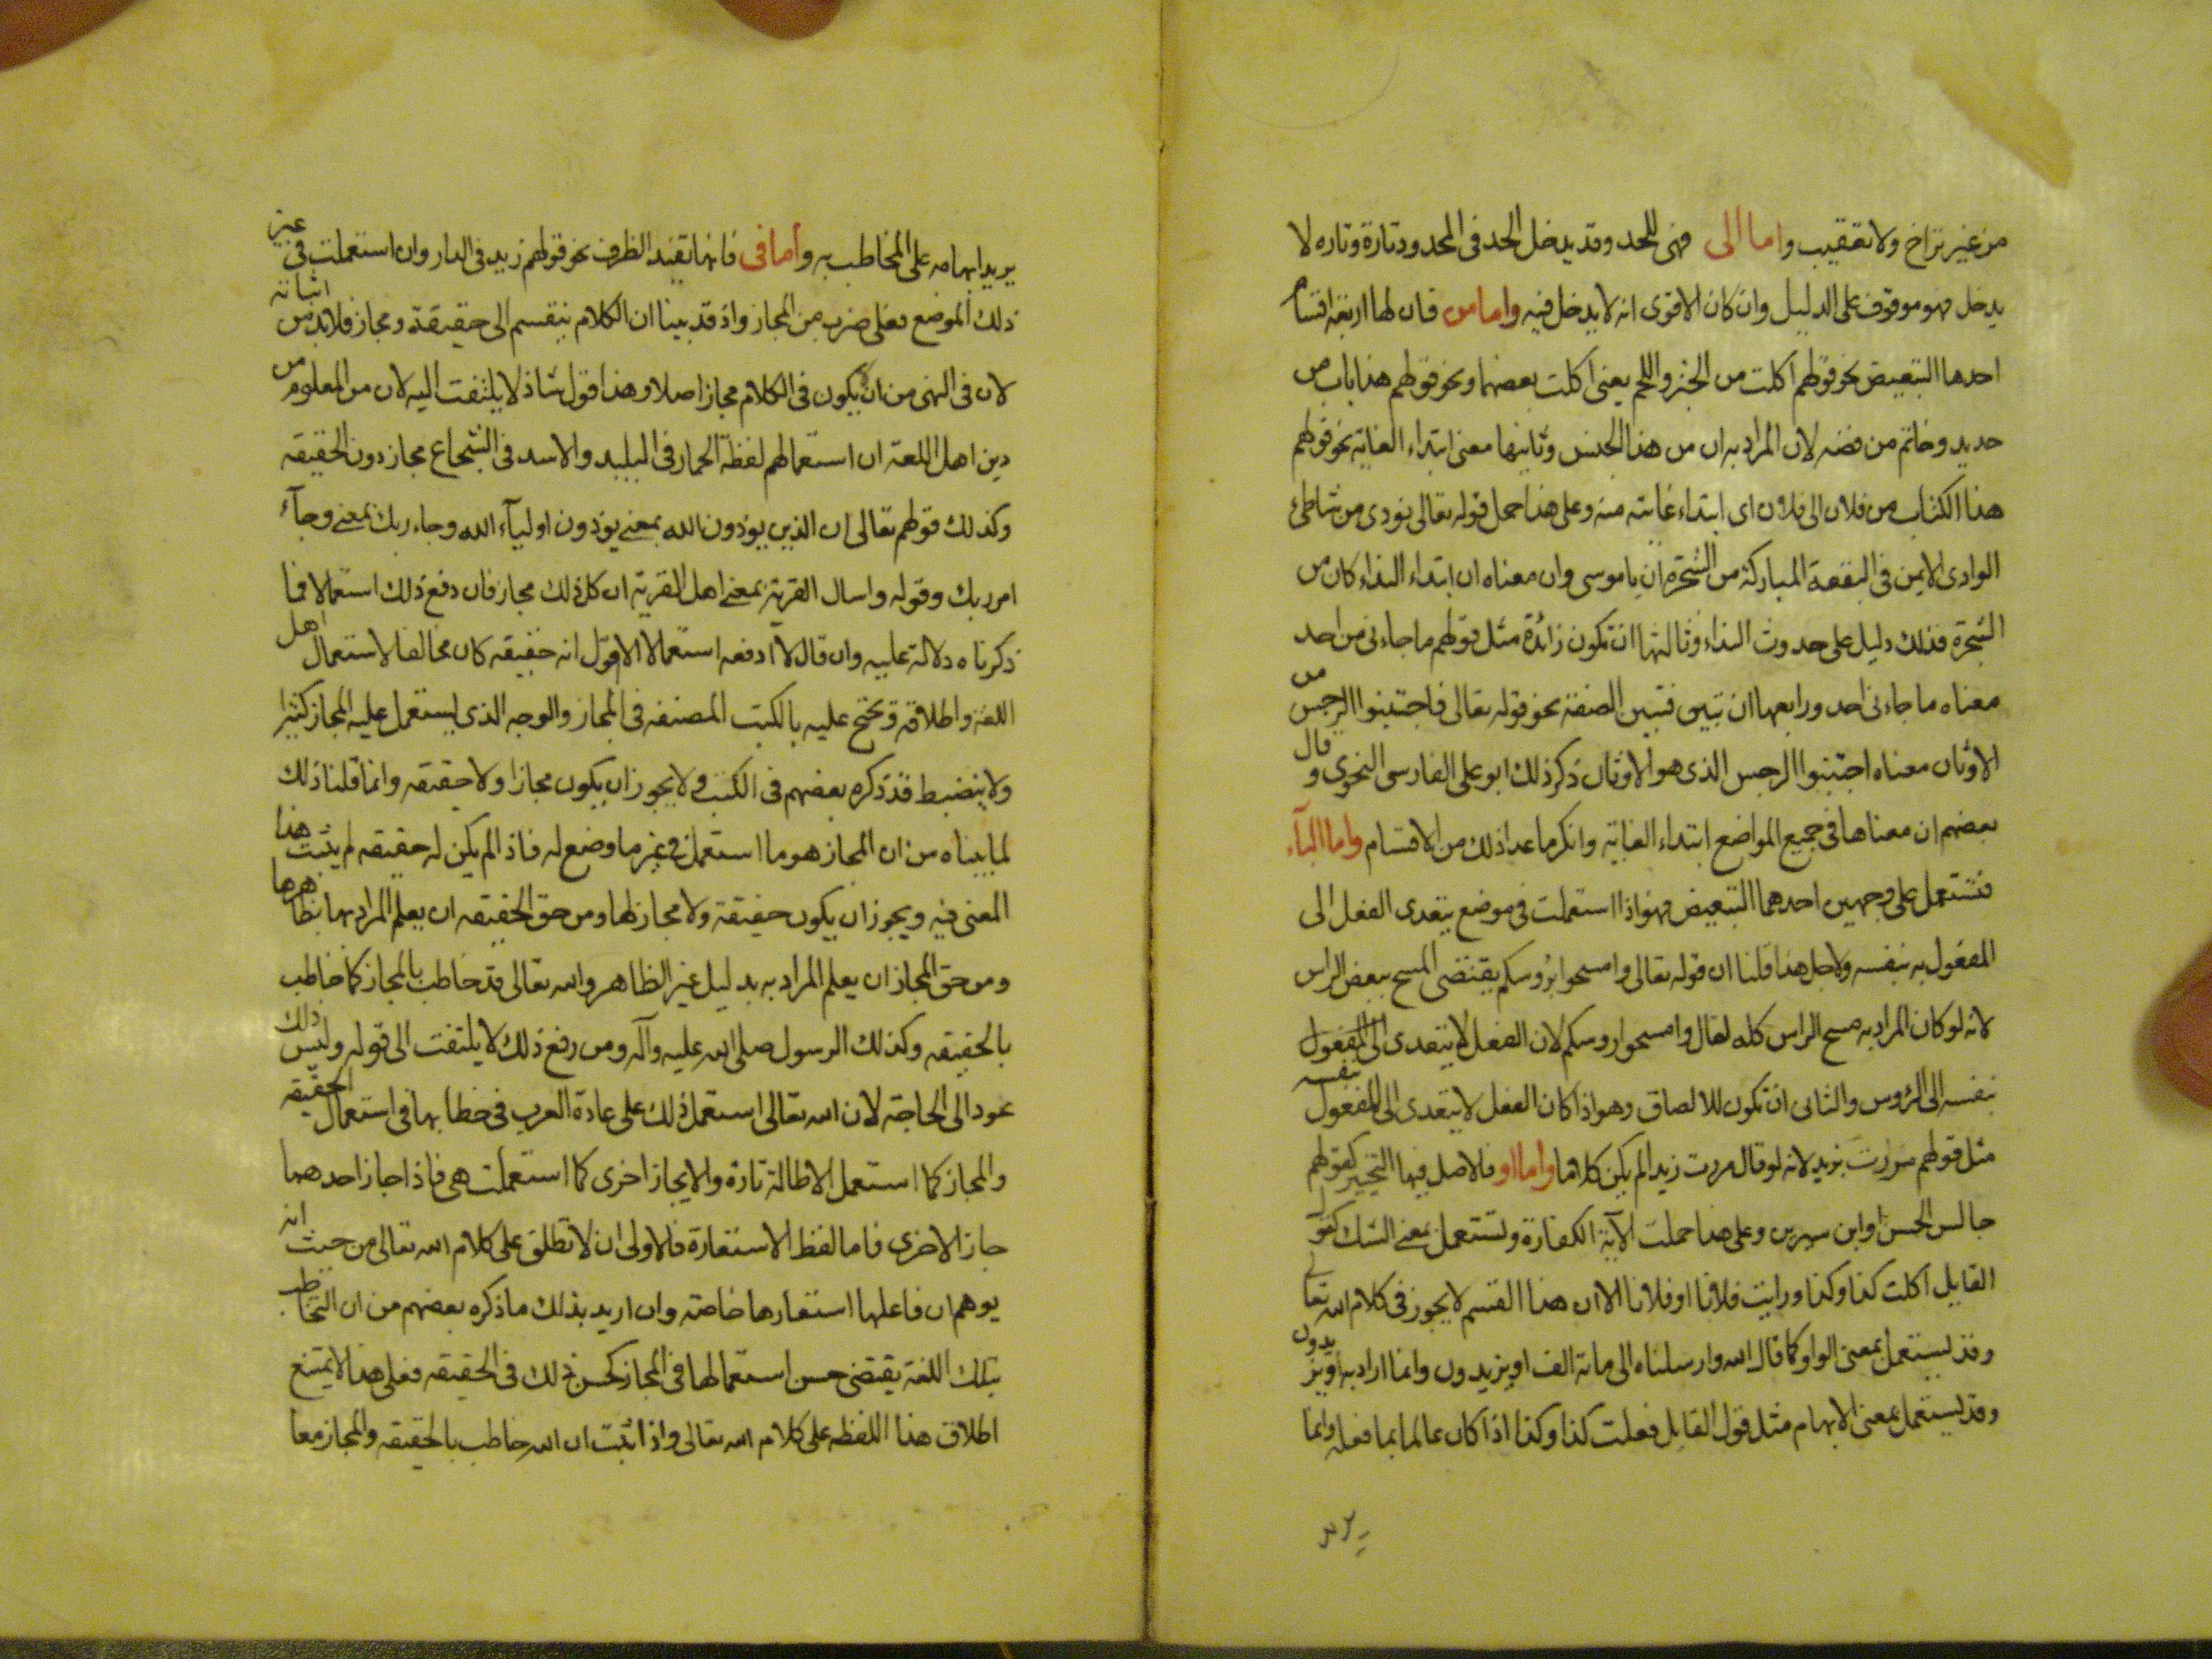 من غير تراخ ولا تعقيب واما الى فهى للحد وقد يدخل الحد فى المحدود تارة وتاره لا
يدخل فهو موقوف على الدليل وان كان الاقوى انه لا يدخل فيه واما من فان لها اربعة اقسام
احدها التبعيض نحو قولهم اكلت من الخبز واللحم يعنى اكلت بعضهما ونحو قولهم هذا باب من
حديد وخاتم من فضه لان المراد به ان من هذا الجنس وثانيها معنى ابتداء الغاية نحو قولهم
هذا الكتاب من فلان الى فلان اى ابتداء غايته منه وعلى هذا حمل قوله تعالى نودى من شاطئ
الوادى الايمن فى البقعة المباركة من الشجرة ان يا موسى وان معناه ان ابتداء النداء كان من
الشجرة فذلك دليل على حدوث النداء وثالثها ان تكون زائدة مثل قولهم ما جاءنى من احد
معناه ما جاءنى احد ورابعها ان تبين فتبين الصفة نحو قوله تعالى فاجتنبوا الرجس من
الاوثان معناه اجتنبوا الرجس الذى هو الاوثان ذكر ذلك ابو على الفارسى النحوى وقال
بعضهم ان معناها فى جميع المواضع ابتداء الغاية وانكر ما عدا ذلك من الاقسام واما الباء
فتستعمل على وجهين احدهما التبعيض فهو اذا استعملت فى موضع يتعدى الفعل الى
المفعول به بنفسه ولاجل هذا قلنا ان قوله تعالى وامسحوا برؤسكم يقتضى المسح ببعض الراس
لانه لو كان المراد به مسح الراس كله لقال وامسحوا روسكم لان الفعل لا يتعدى الى المفعول
بنفسه الى الرؤس والثانى ان تكون للالصاق وهو اذا كان الفعل لا يتعدى الى المفعول بنفسه
مثل قولهم مررت بزيد لانه لو قال مررت زيدا لم يكن كلاما واما او فالاصل فيها التخيير كقولهم
جالس الحسن او ابن سيرين وعلى هذا حملت الآية الكفارة وتستعمل بمعنى الشك كقول
القايل اكلت كذا وكذا ورايت فلانا او فلانا الا ان هذا القسم لا يجوز فى كلام الله تعالى
وقد يستعمل بمعنى الواو كما قال الله وارسلناه الى مائة الف او يزيدون وانما اراد به ويزيدون
وقد يستعمل بمعنى الابهام مثل قول القايل فعلت كذا وكذا اذا كان عالما بما فعله وانما
يريد ابهامه على المخاطب به واما فى فانها تفيد الظرف نحو قولهم زيد فى الدار وان استعملت فى غير
ذلك الموضع فعلى ضرب من المجاز واذ قد بينا ان الكلام ينقسم الى حقيقة ومجاز فلا بد من اثباته
لان فى النهى من ان يكون فى الكلام مجاز اصلا وهذا قول شاذ لا يلتفت اليه لان من المعلوم من
دين اهل اللغة ان استعمالهم لفظة الحمار فى البليد والاسد فى الشجاع مجاز دون الحقيقه
وكذلك قولهم تعالى ان الذين يؤذون الله بمعنى يؤذون اولياء الله وجاء ربك بمعنى وجاء
امر ربك وقوله واسال القرية بمعنى اهل القرية ان كل ذلك مجاز فان دفع ذلك استعمالا فما
ذكرناه دلالة عليه وان قال لا ادفعه استعمالا الا اقول انه حقيقه كان مخالفا لاستعمال اهل
اللغة واطلاقه ويحتج عليه بالكتب المصنفه فى المجاز والوجه الذى يستعمل عليه المجاز كثيرا
ولا ينضبط قد ذكره بعضهم فى الكتب ولا يجوز ان يكون مجازا ولا حقيقه وانما قلنا ذلك
لما بيناه من ان المجاز هو ما استعمل فى غير ما وضع له فاذا لم يكن له حقيقه لم يثبت هذا
المعنى فيه ويجوز ان يكون حقيقة ولا مجاز لها ومن حق الحقيقه ان يعلم المراد بها بظاهرها
ومن حق المجاز ان يعلم المراد به بدليل غير الظاهر والله تعالى قد خاطب بالمجاز كما خاطب
بالحقيقه وكذلك الرسول صلى الله عليه وآله ومن رفع ذلك لا يلتفت الى قوله وليس ذلك
عود الى الحاجة لان الله تعالى استعمل ذلك على عادة العرب فى خطابها فى استعمال الحقيقه
والمجاز كما استعمل الاطالة تارة والايجاز اخرى كما استعملت هى فاذا جاز احدهما
جاز الاخرى فاما لفظ الاستعارة فالاولى ان لا تطلق على كلام الله تعالى من حيث انه
يوهم ان فاعلها استعارها خاصه وان اريد بذلك ما ذكره بعضهم من ان التخاطب
بتلك اللغة يقتضى حسن استعمالها فى المجاز كحسن ذلك فى الحقيقه فعلى هذا لا يمتنع
اطلاق هذا اللفظه على كلام الله تعالى واذا ثبت ان الله خاطب بالحقيقه والمجاز معا